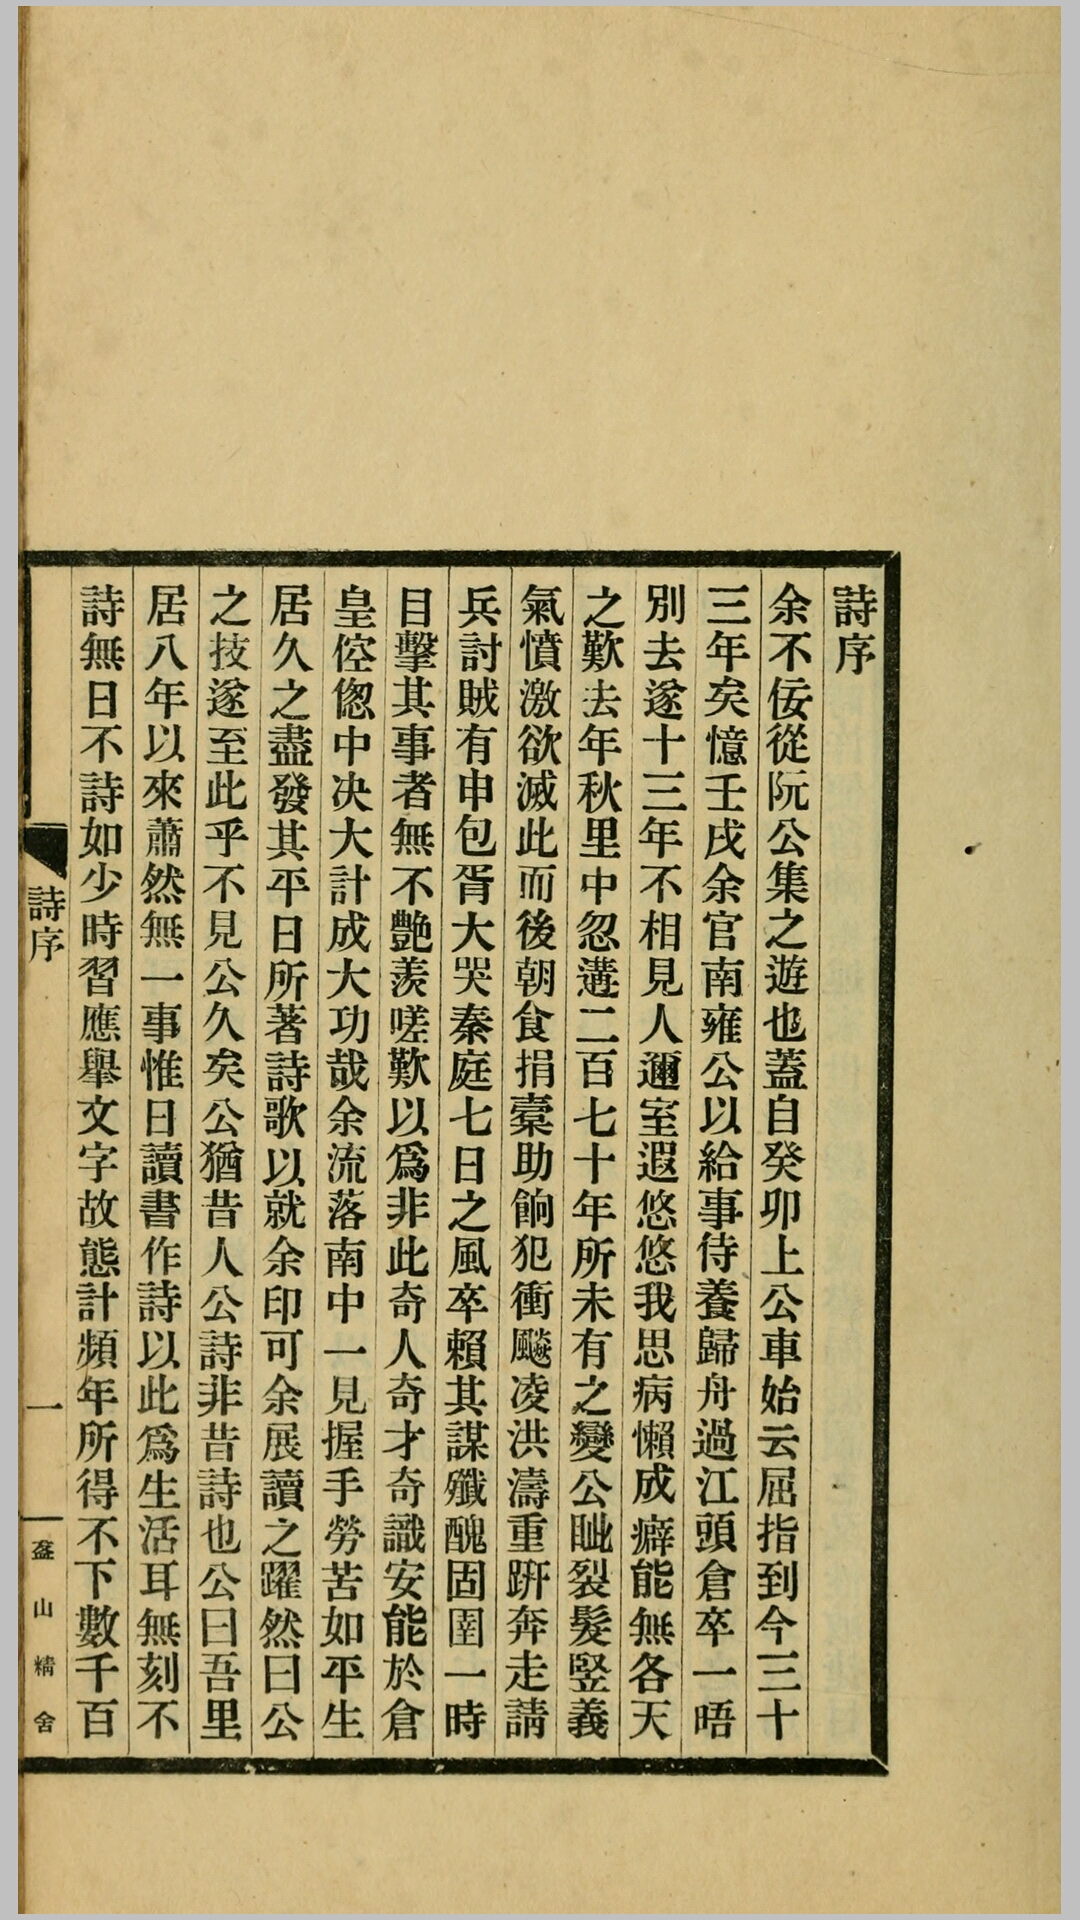 詩序
余不佞從阮公集之遊也蓋自癸卯上公車始云屈指到今三十
三年矣憶壬戌余官南雍公以給事侍養歸舟過江頭倉卒一晤
別去遂十三年不相見人邇室遐悠悠我思病懶成癖能無各天
之歎去年秋里中忽遘二百七十年所未有之變公眦裂髮竪義
氣憤激欲滅此而後朝食捐橐助餉犯衝颷凌洪濤重趼奔走請
兵討賊有申包胥大哭秦庭七日之風卒賴其謀殲醜固圉一時
目擊其事者無不艷羨嗟歎以爲非此奇人奇才奇識安能於倉
皇倥偬中决大計成大功哉余流落南中一見握手勞苦如平生
居久之盡發其平日所著詩歌以就余印可余展讀之躍然曰公
之技遂至此乎不見公久矣公猶昔人公詩非昔詩也公曰吾里
居八年以來蕭然無一事惟日讀書作詩以此爲生活耳無刻不
詩無日不詩如少時習應舉文字故態計頻年所得不下數千百
詩序
一
盔山精舍